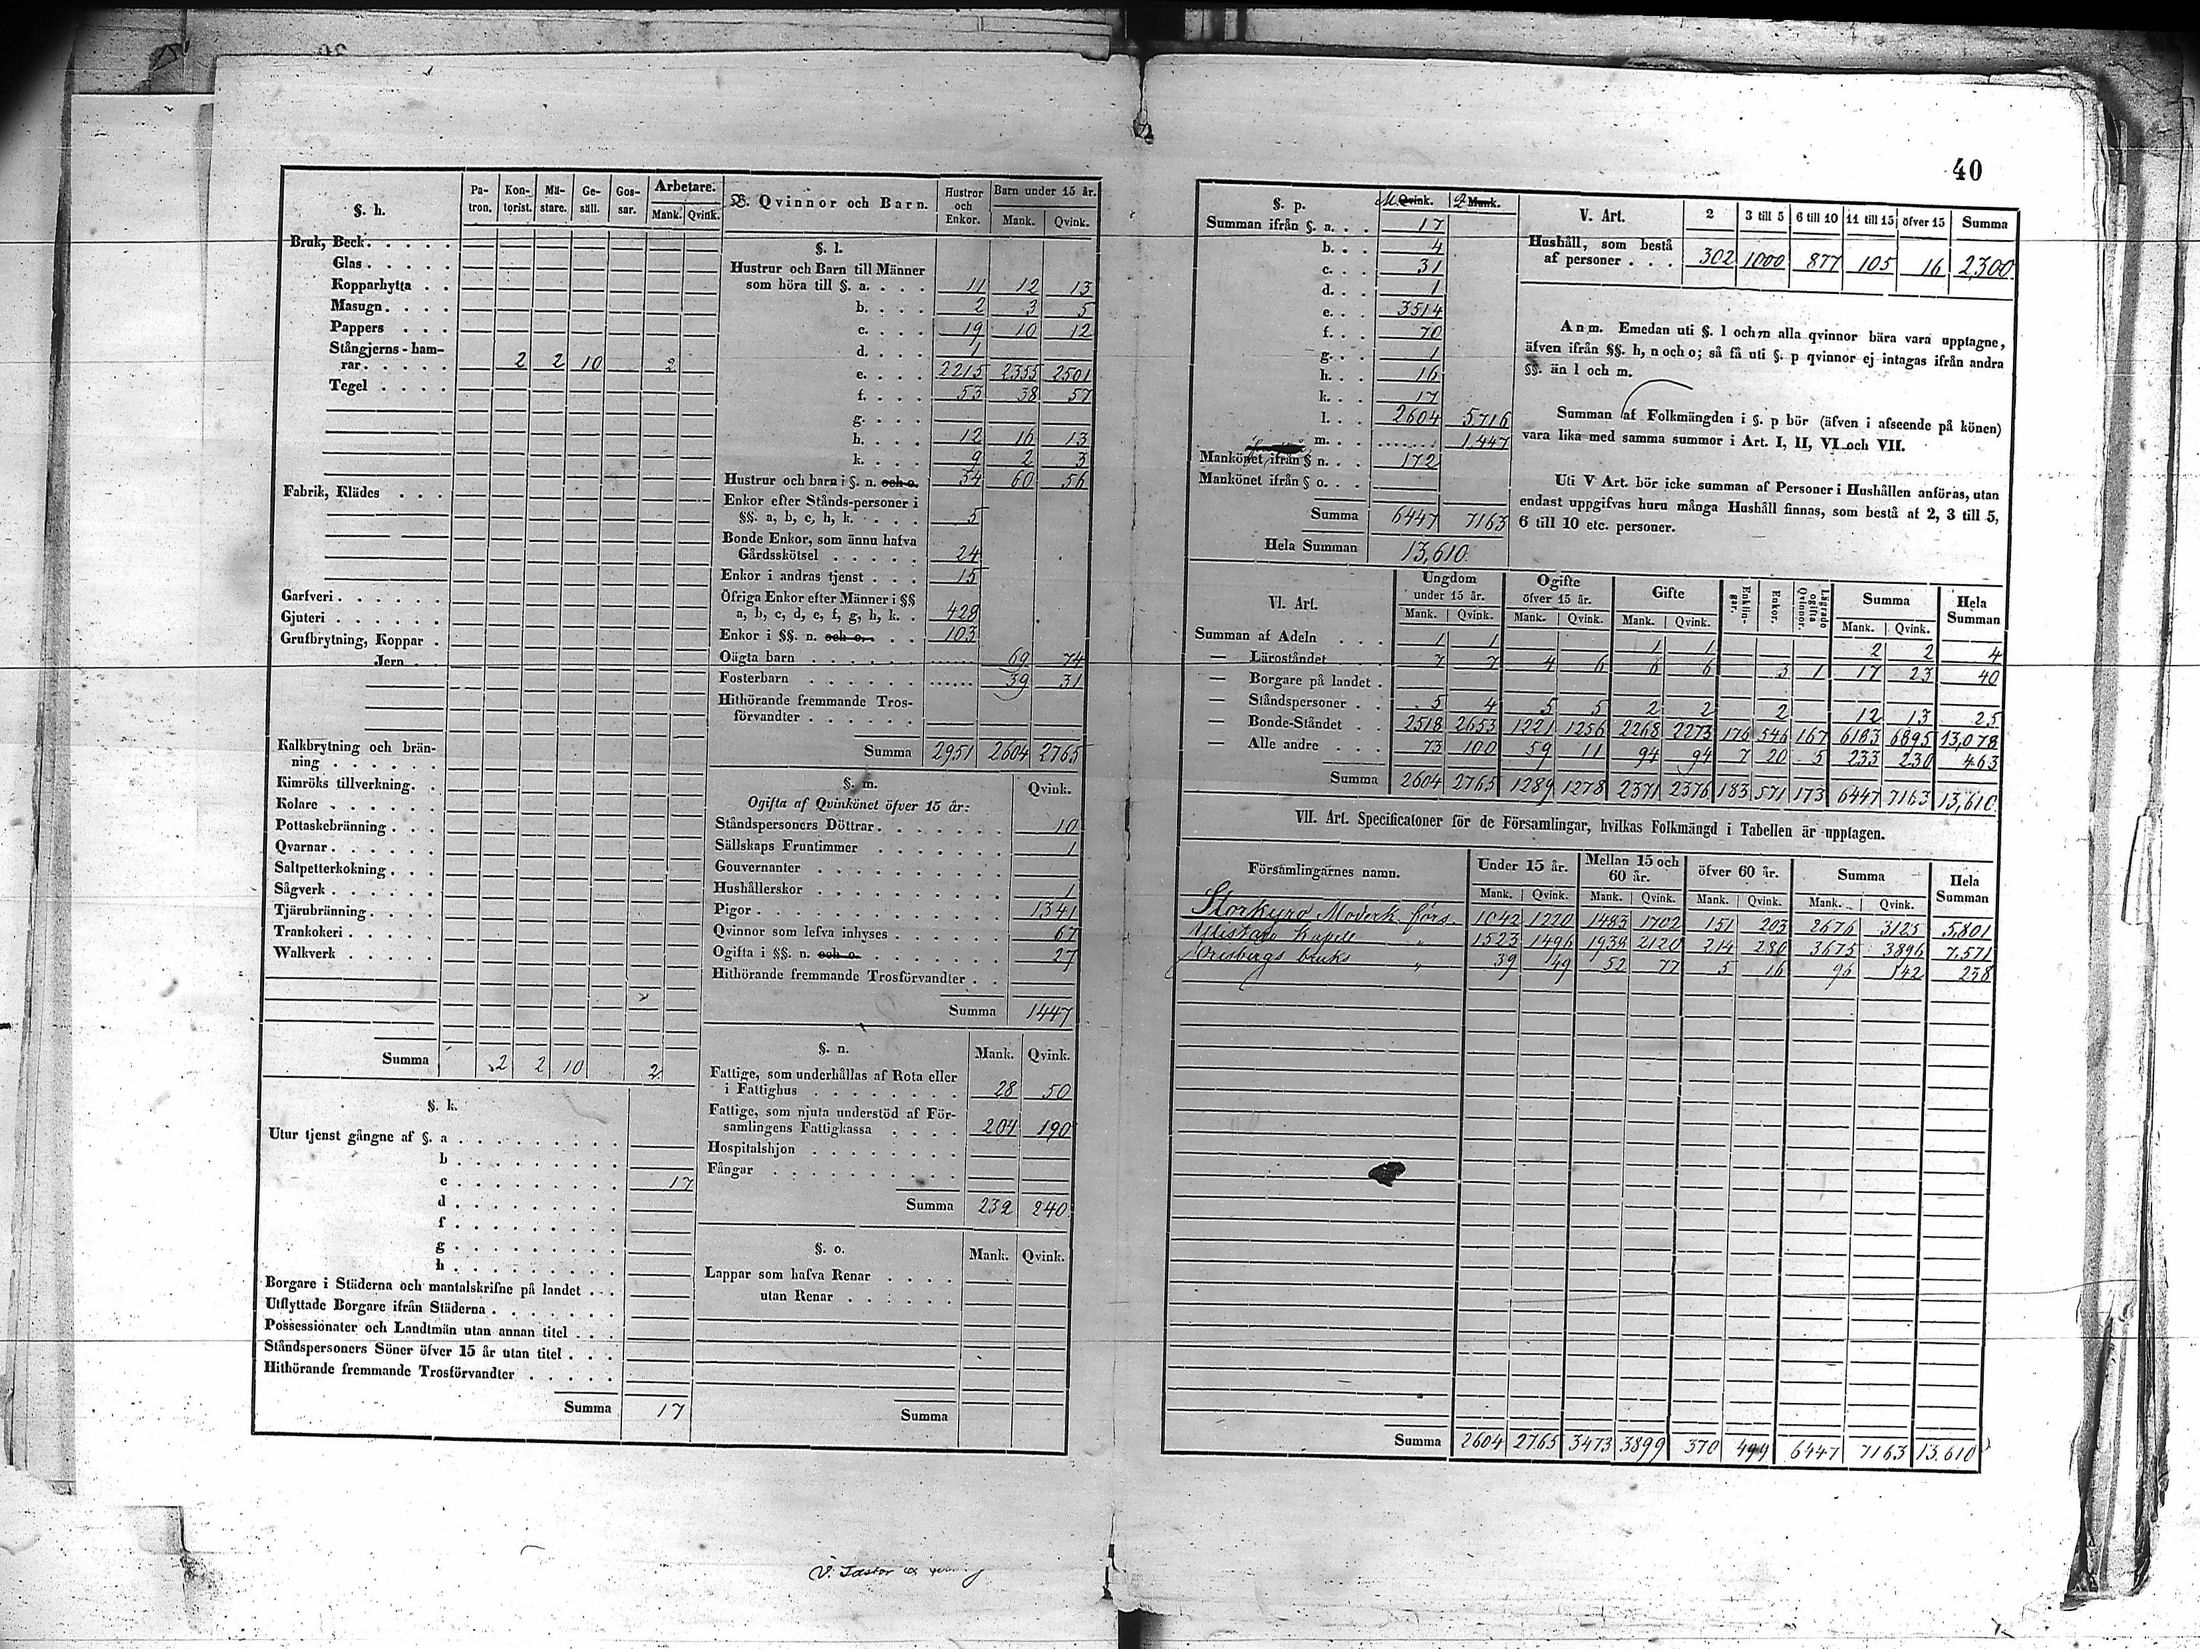 40
§. h. Pa-tron. Kon-torist. Mä-stare. Ge-säll. Gos-sar. Arbetare. Mank. Qvink.
Bruk, Beck
Glas
Kopparhytta
Masugn
Pappers
Stångjerns-ham-
rar 2 2 10 2
Tegel
Fabrik, Klädes
Garfveri
Gjuteri
Grufbrytning, Koppar
Jern
Kalkbrytning och brän-
ning
Kimröks tillverkning
Kolare
Pottaskebränning
Qvarnar
Saltpetterkokning
Sågverk
Tjärubränning
Trankokeri
Walkverk
Summa 2 2 10 2
§. k.
Utur tjenst gångne af §. a
b
c 17
d
f
g
h
Borgare i Städerna och mantalskrifne på landet
Utflyttade Borgare ifrån Städerna
Possessionater och Landtmän utan annan titel
Ståndspersoners Söner öfver 15 år utan titel
Hithörande fremmande Trosförvandter
Summa 17
B. Qvinnor och Barn. Hustror och Enkor. Barn under 15 år. Mank. Qvink.
§. l.
Hustrur och Barn till Männer
som höra till §. a. 11 12 13
b. 2 3 5
c. 19 10 12
d. 1
e. 2215 2355 2501
f. 53 38 57
g.
h. 12 16 13
k. 9 2 3
Hustrur och barn i §. n. och o. 54 60 56
Enkor efter Stånds-personer i
§§. a, b, c, h, k. 5
Bonde Enkor, som ännu hafva
Gårdsskötsel 24
Enkor i andras tjenst 15
Öfriga Enkor efter Männer i §§
a, b, c, d, e, f, g, h, k. 428
Enkor i §§. n. och o. 103
Oägta barn 69 74
Fosterbarn 39 31
Hithörande fremmande Tros-
förvandter
Summa 2951 2604 2765
§. m. Qvink.
Ogifta af Qvinkönet öfver 15 år:
Ståndspersoners Döttrar 10
Sällskaps Fruntimmer 1
Gouvernanter
Hushållerskor 1
Pigor 1341
Qvinnor som lefva inhyses 67
Ogifta i §§. n. och o. 27
Hithörande fremmande Trosförvandter
Summa 1447
§. n. Mank. Qvink.
Fattige, som underhållas af Rota eller
i Fattighus 28 50
Fattige, som njuta understöd af För-
samlingens Fattigkassa 204 190
Hospitalshjon
Fångar
Summa 232 240
§. o. Mank. Qvink.
Lappar som hafva Renar
utan Renar
Summa
§. p. M Qvink. Q Mank.
Summan ifrån §. a. 17
b. 4
c. 31
d. 1
e. 3514
f. 70
g. 1
h. 16
k. 17
l. 2604 5716
m. 1,447
Mankönet ifrån § n. 172
Mankönet ifrån § o.
Summa 6447 7163
Hela Summan 13,610
V. Art. 2 3 till 5 6 till 10 11 till 15 öfver 15 Summa
Hushåll, som bestå
af personer 302 1000 877 105 16 2,300
Anm. Emedan uti §. l och m alla qvinnor bära vara upptagne,
äfven ifrån §§. h, n och o; så få uti §. p qvinnor ej intagas ifrån andra
§§. än l och m.
Summan af Folkmängden i §. p bör (äfven i afseende på könen)
vara lika med samma summor i Art. I, II, VI och VII.
Uti V Art. bör icke summan af Personer i Hushållen anföras, utan
endast uppgifvas huru många Hushåll finnas, som bestå af 2, 3 till 5,
6 till 10 etc. personer.
VI. Art. Ungdom under 15 år. Ogifte öfver 15 år. Gifte Enklin-gar. Enkor. Lägrade ogifta Qvinnor. Summa Hela Summan
Mank. Qvink. Mank. Qvink. Mank. Qvink. Mank. Qvink.
Summan af Adeln 1 1 1 1 2 2 4
— Läroståndet 7 7 4 6 6 6 3 1 17 23 40
— Borgare på landet
— Ståndspersoner 5 4 5 5 2 2 2 12 13 25
— Bonde-Ståndet 2518 2653 1221 1256 2268 2273 176 546 167 6183 6895 13,078
— Alle andre 73 100 59 11 94 94 7 20 5 233 230 463
Summa 2604 2765 1289 1278 2371 2376 183 571 173 6447 7163 13,610
VII. Art. Specificatoner för de Församlingar, hvilkas Folkmängd i Tabellen är upptagen.
Församlingarnes namn. Under 15 år. Mellan 15 och 60 år. öfver 60 år. Summa Hela Summan
Mank. Qvink. Mank. Qvink. Mank. Qvink. Mank. Qvink.
Storkyro Moderk. förs. 1042 1220 1483 1702 151 203 2676 3125 5,801
Ylistaro Kapell " 1523 1496 1938 2120 214 280 3675 3896 7,571
Orisbergs bruks " 39 49 52 77 5 16 96 142 238
Summa 2604 2765 3473 3899 370 499 6447 7163 13,610